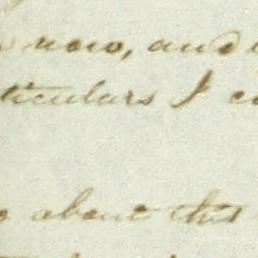 now, and
ticulars I c
about this